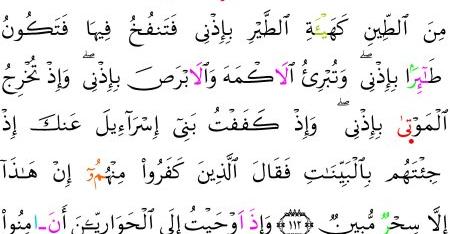 مِنَ ٱلطِّينِ كَهَيْـَٔةِ ٱلطَّيْرِ بِإِذْنِى فَتَنفُخُ فِيهَا فَتَكُونُ
طَـٰٓئِرًۢا بِإِذْنِىۖ وَتُبْرِئُ اُ۬لَاكْمَهَ وَالَابْرَصَ بِإِذْنِىۖ وَإِذْ تُخْرِجُ
اُ۬لْمَوْتٰى بِإِذْنِىۖ وَإِذْ كَفَفْتُ بَنِىٓ إِسْرَآءِيلَ عَنكَ إِذْ
جِئْتَهُم بِٱلْبَيِّنَـٰتِ فَقَالَ ٱلَّذِينَ كَفَرُواْ مِنْهُمُۥٓ إِنْ هَـٰذَآ
إِلَّا سِحْرٌ مُّبِينٌ ﴿١١٣﴾ وَإِذَ اَوْحَيْتُ إِلَى ٱلْحَوَارِيِّـۧنَ أَنَ ـ اٰمِنُواْ